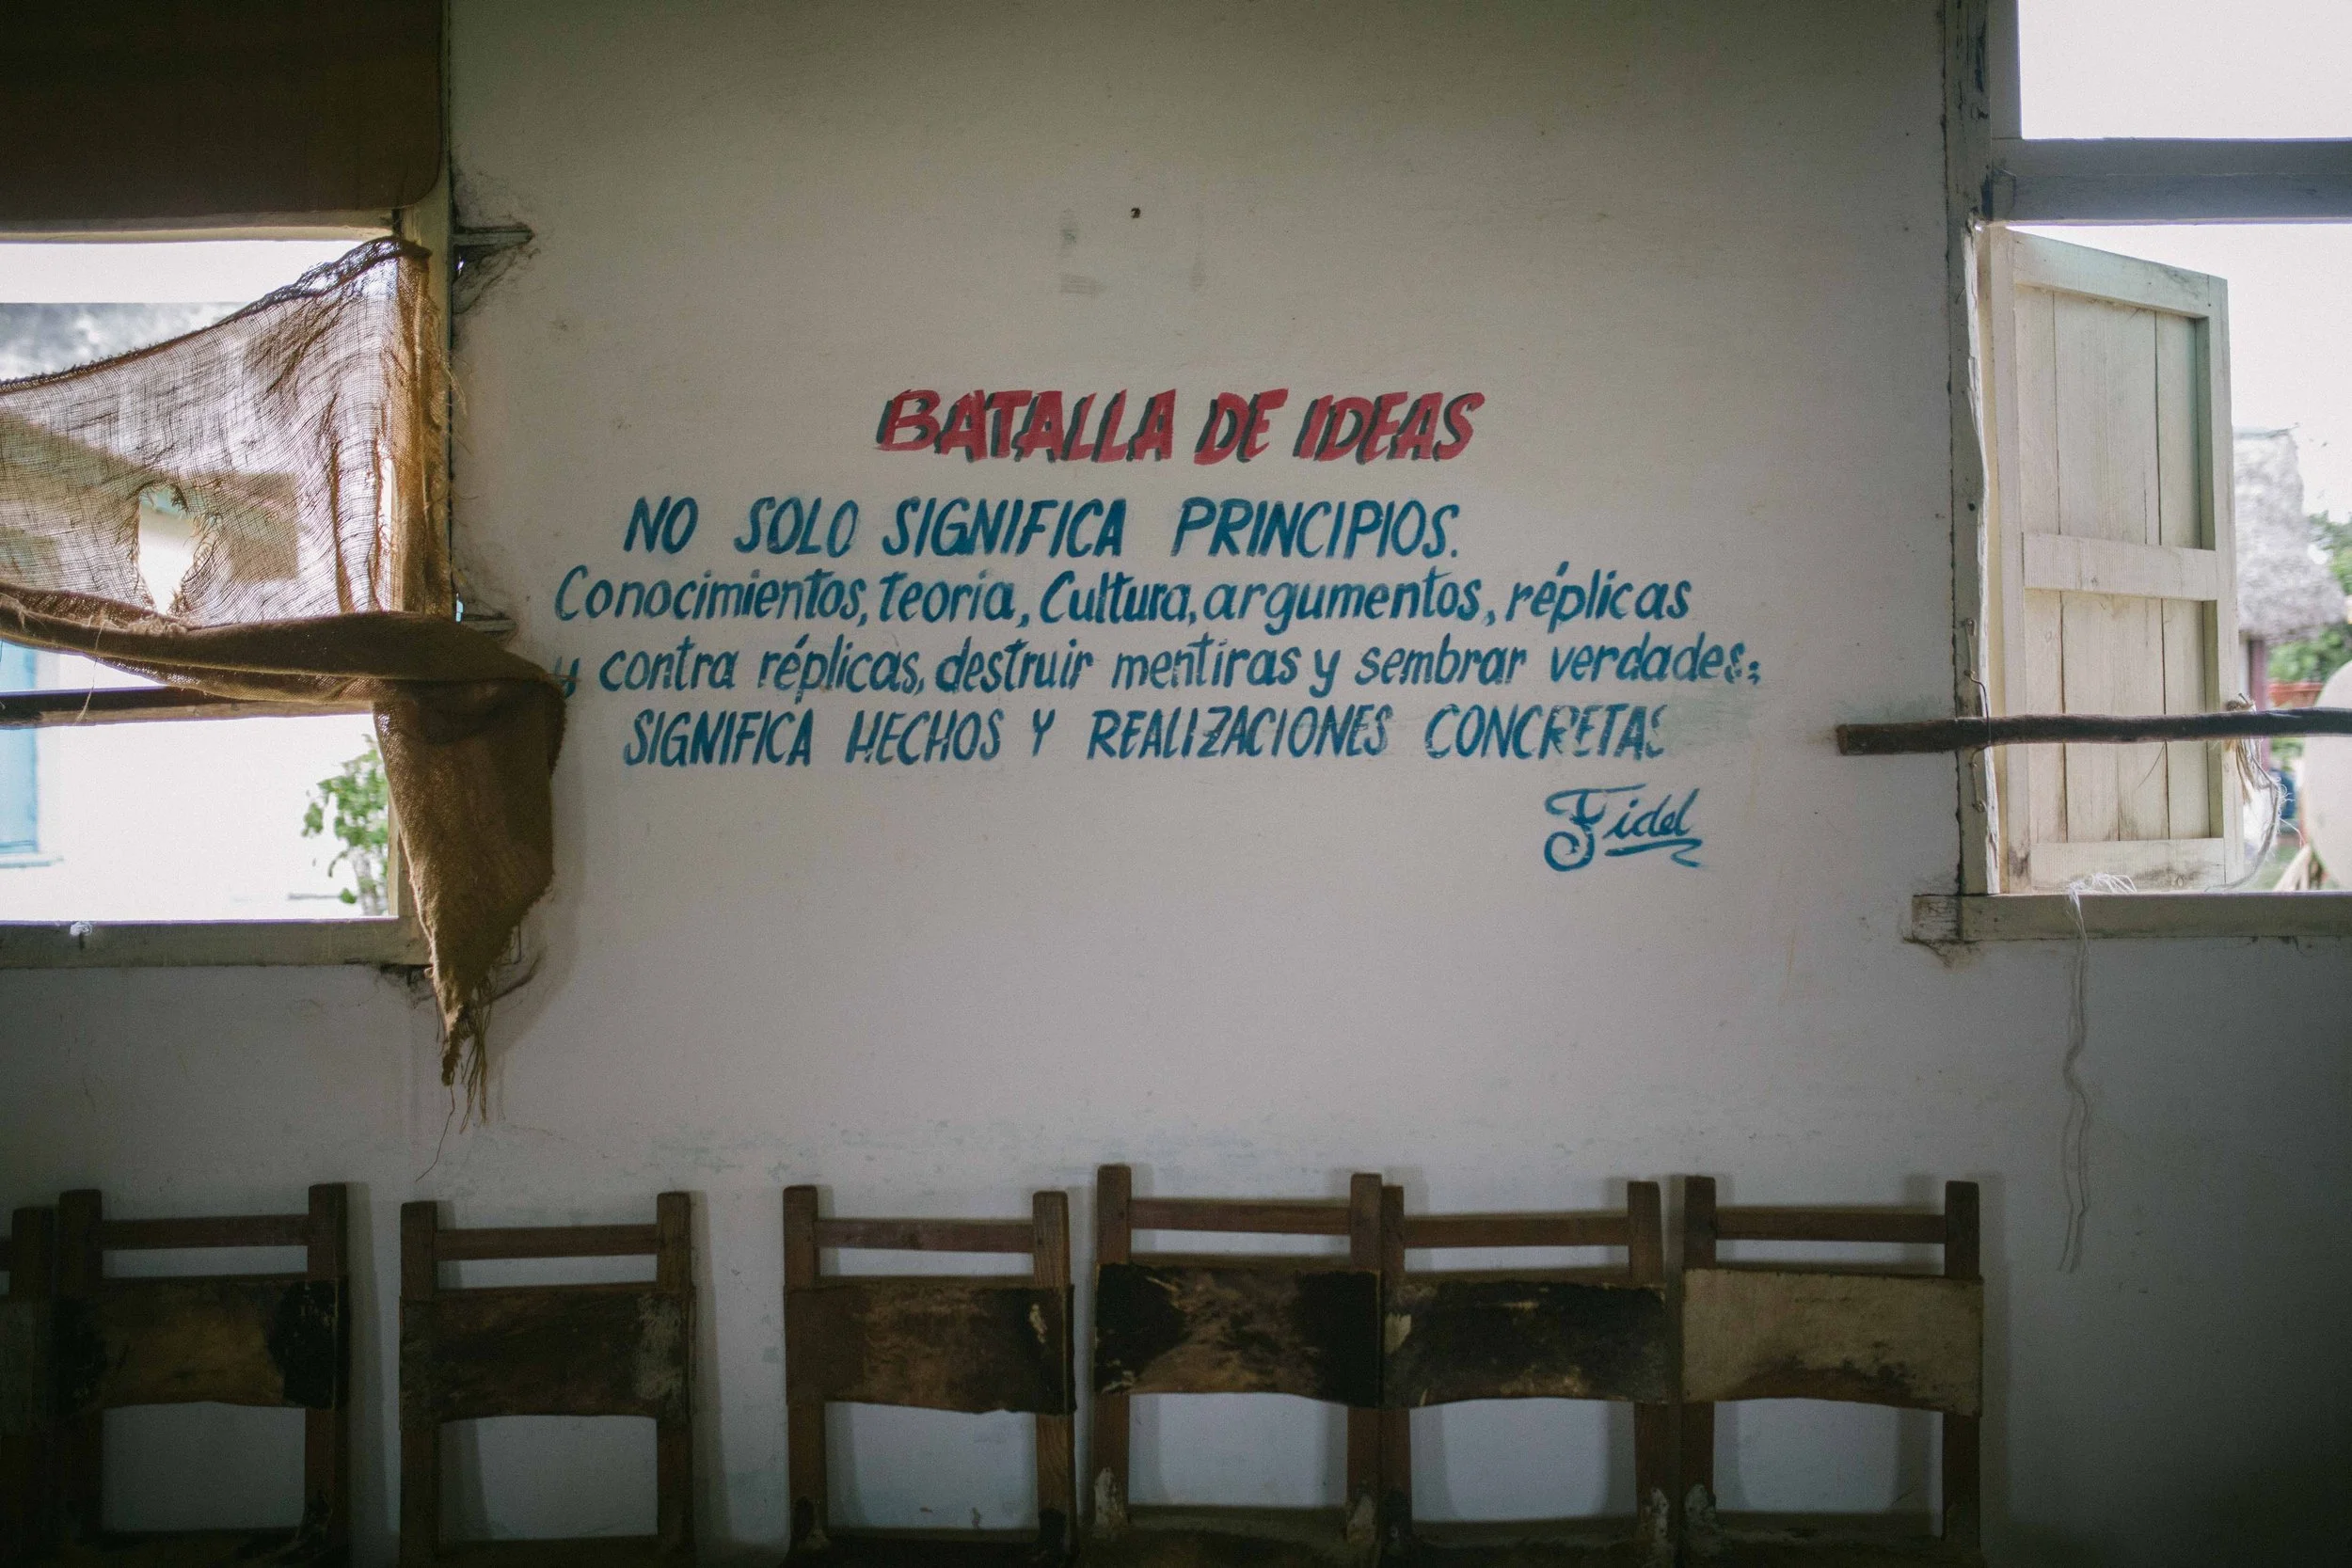 BATALLA DE IDEAS
NO SOLO SIGNIFICA PRINCIPIOS.
Conocimientos, teoria, Cultura, argumentos, réplicas
y contra réplicas, destruir mentiras y sembrar verdades;
SIGNIFICA HECHOS Y REALIZACIONES CONCRETAS
Fidel